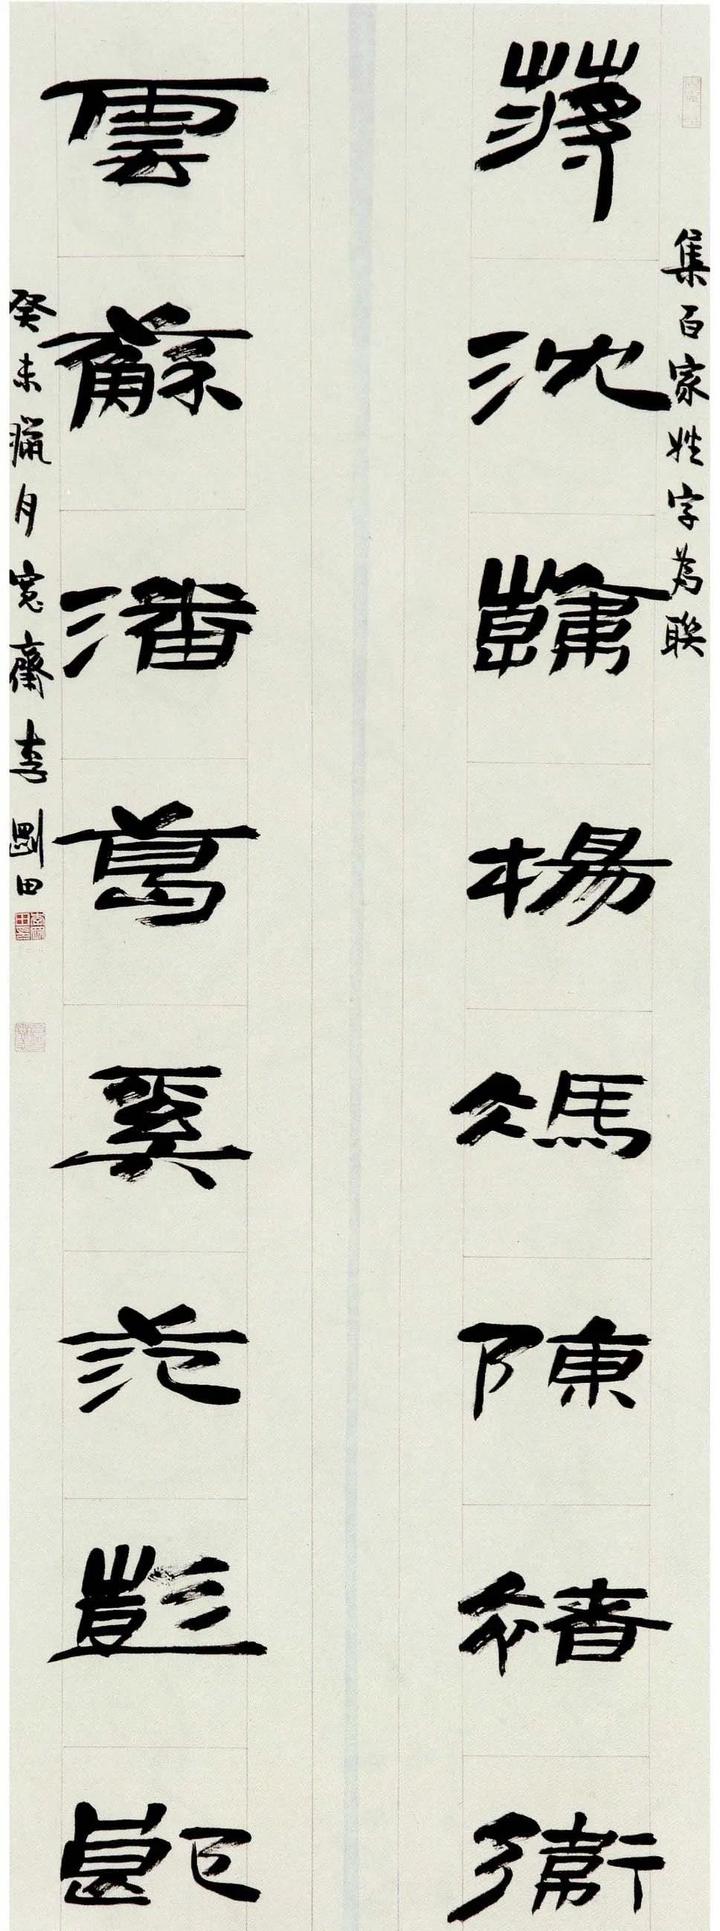 集百家姓字為聯
蔣沈韓楊馮陳褚衛
雲蘇潘葛奚范彭郎
癸未臘月寬齋李剛田